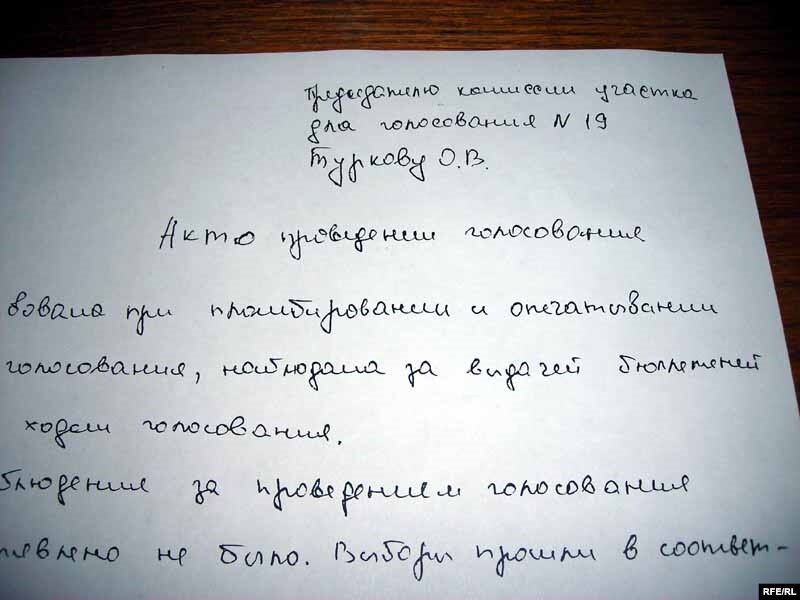 Председателю комиссии участка
для голосования N 19
Туркову О.В.
Акт о проведении голосования
вовала при пломбировании и опечатывании
голосования, наблюдала за выдачей бюллетеней
ходом голосования.
блюдения за проведением голосования
явлено не было. Выборы прошли в соответ-
RFE/RL